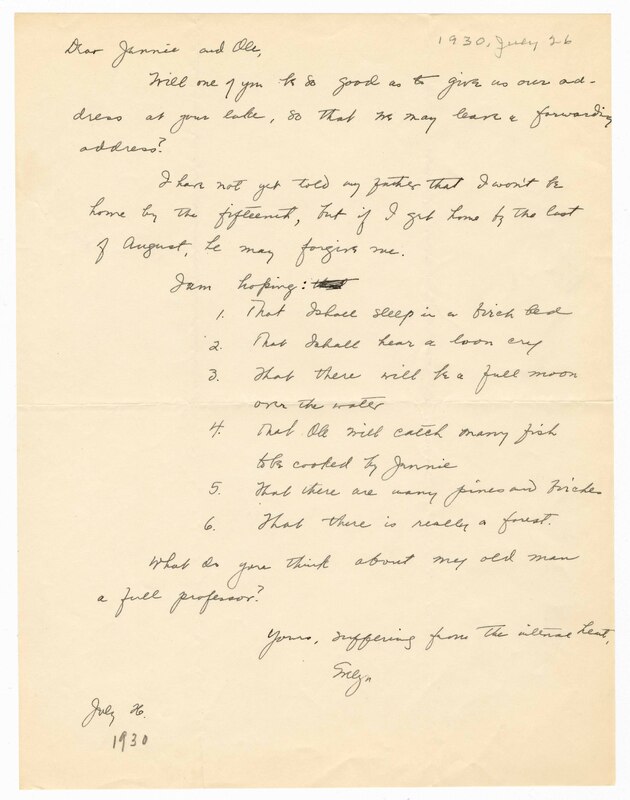 1930, July 26
Dear Jennie and Ole,
Will one of you be so good as to give us our ad-
dress at your lake, so that we may leave a forwarding
address?
I have not yet told my father that I won't be
home by the fifteenth, but if I get home by the last
of August, he may forgive me.
I am hoping:
1. That I shall sleep in a birch bed
2. That I shall hear a loon cry
3. That there will be a full moon
over the water
4. That Ole will catch many fish
to be cooked by Jennie
5. That there are many pines and birches
6. That there is really a forest.
What do you think about my old man
a full professor?
Yours, suffering from the intense heat,
Evelyn
July 26.
1930